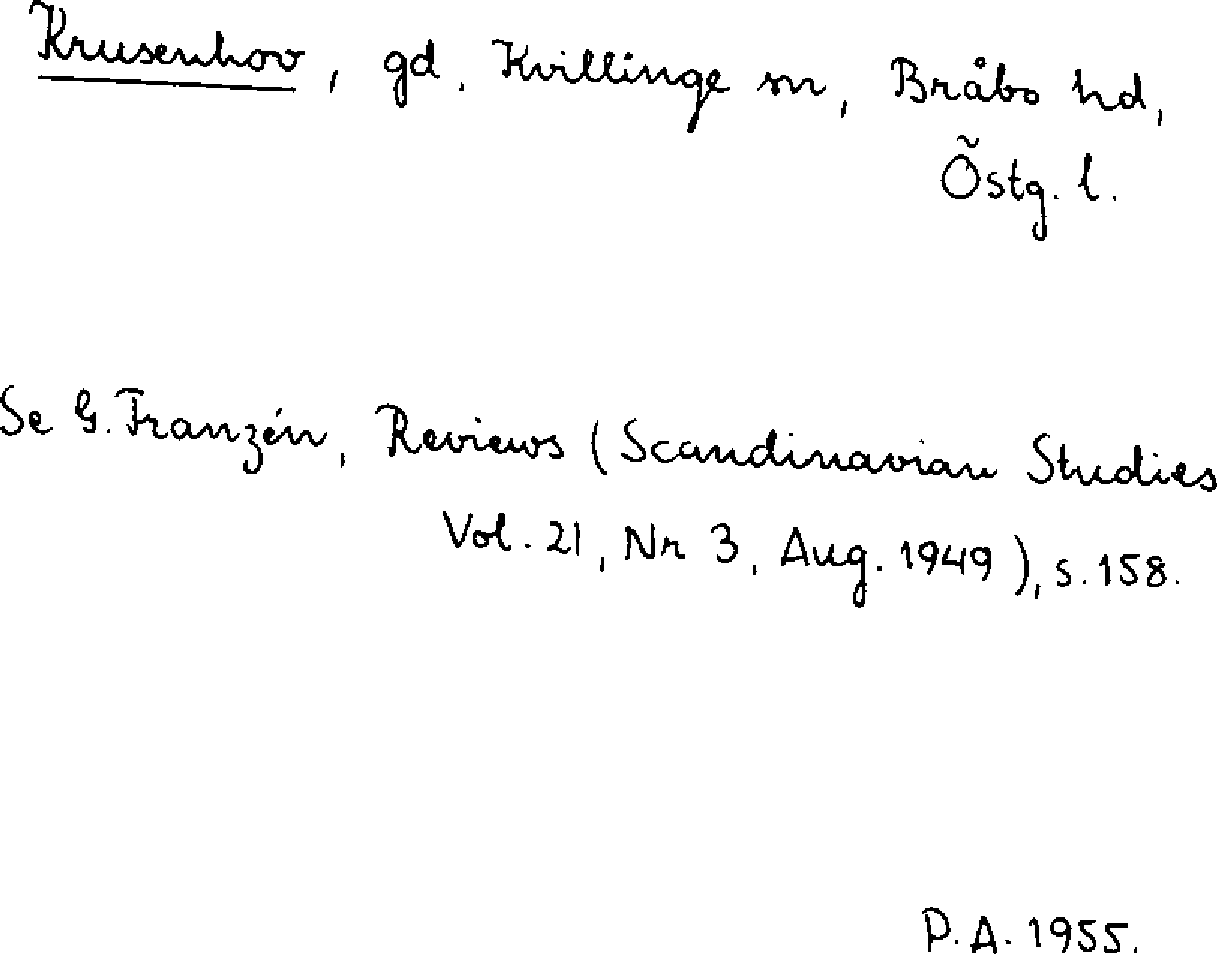 Krusenhov, gd. Kvillinge sn, Bråbo hd,
Östg. l.
Se G. Franzén, Reviews (Scandinavian Studies
Vol. 21, Nr 3, Aug. 1949), s. 158.
P.A. 1955.